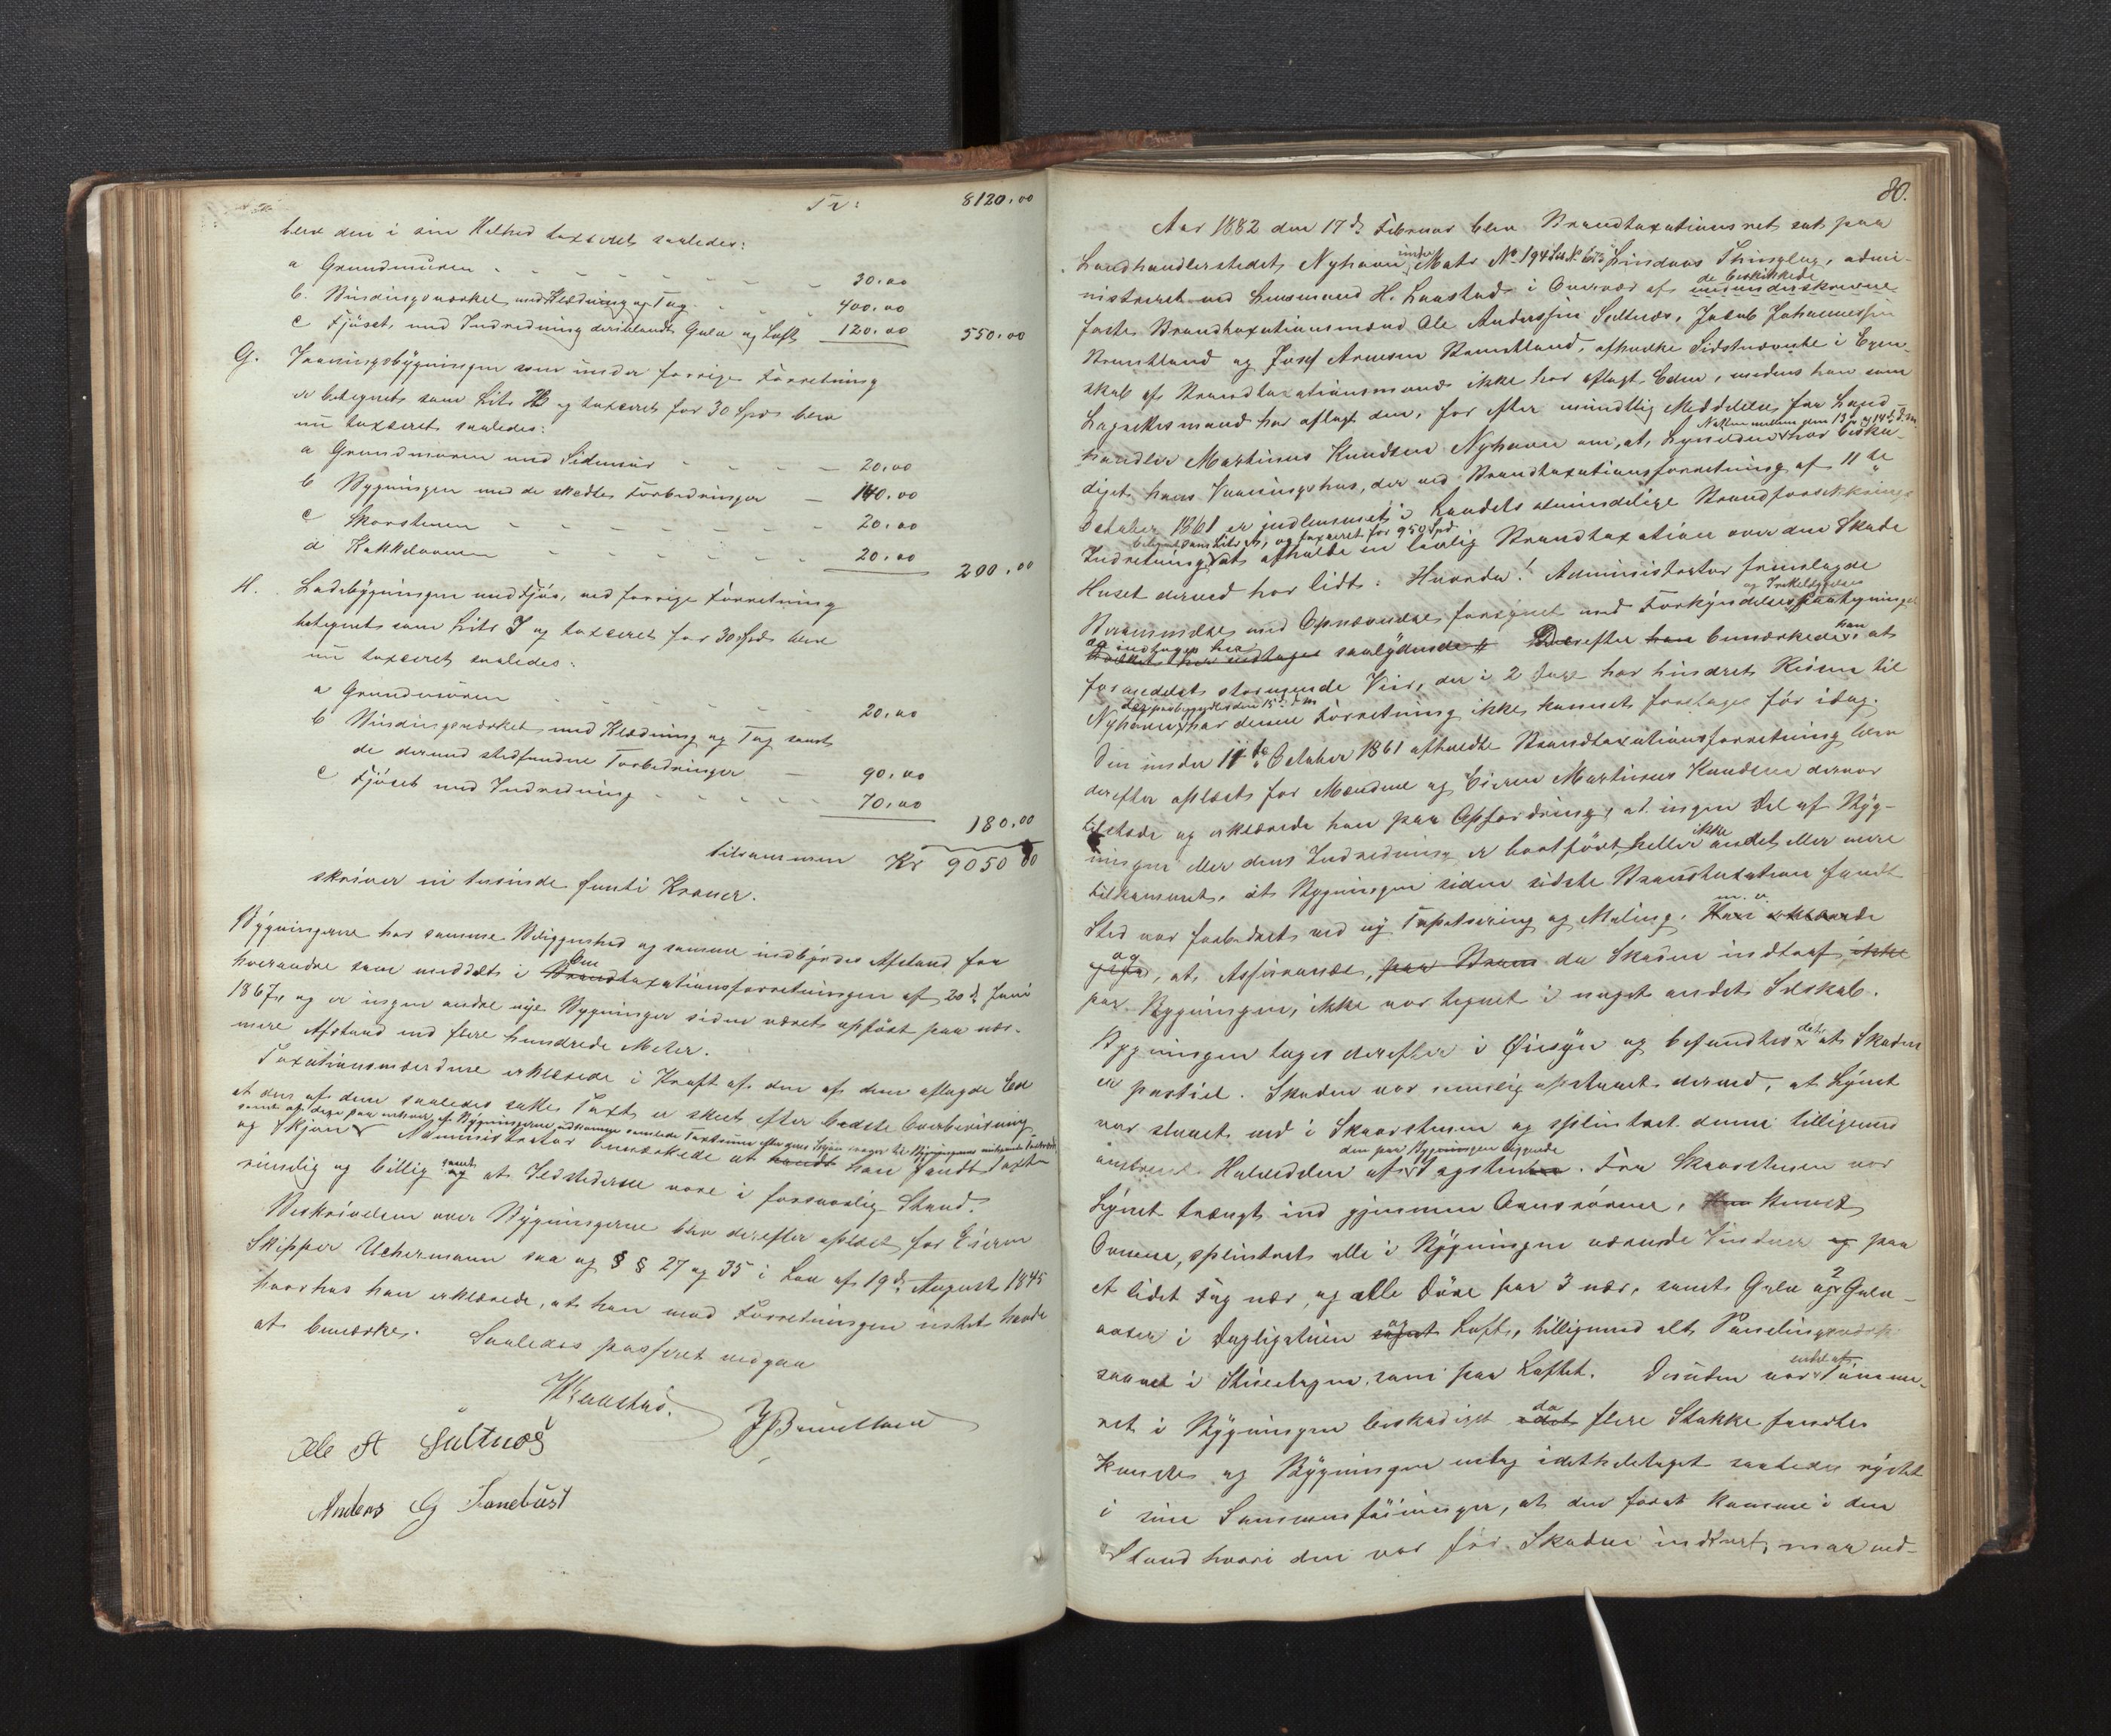 Tr: 8120.00
blev den i sin Helhed taxeret saaledes:
a Grundmuren - - - - - - 30.00
b. Bindingsværket med Klædning og Tag - - 400.00
c Fjöset, med Indredning deriblandt Gulv og Loft 120.00 550.00
G. Vaaningsbygningen som under forrige Forretning
er betegnet som Litr B og taxeret for 30 Spd. blev
nu taxeret saaledes:
a Grundmuren med Sidemur - - - - 20.00
b Bygningen med de skedte Forbedringer - 140.00
c Skorstenen - - - - - - - 20.00
d Kakkelovnen - - - - - - 20.00 200.00
H. Ladebygningen med Fjös, ved forrige Forretning
betegnet som Litr I og taxeret for 30 Spd. blev
nu taxeret saaledes:
a Grundmuren - - - - - - 20.00
b Bindingsværket med Klædning og Tag samt
de derved stedfundne Forbedringer - 90.00
c Fjöset med Indredning - - - - - 70.00
180.00
tilsammen Kr 9050 00
skriver ni tusinde femti Kroner.
Bygningerne har samme Beliggenhed og samme indbyrdes Afstand fra
hverandre som meddelt i Brandtaxationsforretningen af 20d Juni
1867, og er ingen andre nye Bygninger siden været opfört paa nær-
mere Afstand end flere hundrede Meter.
Taxationsmændene erklærede i Kraft af den af dem aflagde Ed
at den af dem saaledes satte Taxt er skeet efter bedste Overbevisning
og Skjön. Administrator bemærkede at han fandt Taxten
rimelig og billig samt at Ildstederne vare i forsvarlig Stand.
Beskrivelsen over Bygningerne blev derefter oplæst for Eieren
Skipper Uchermann saa og § § 27 og 35 i Lov af 19d August 1845
hvorhos han erklærede, at han mod Forretningen intet havde
at bemærke. Saaledes passeret vedgaa
H Laastad. J Brundtland
Ole A Saltnæs
Anders G Tanebust
80.
Aar 1882 den 17d Februar blev Brandtaxationsret sat paa
Landhandlerstedet Nyhavn under Matr No 194 Lindaas Thinglag, admi-
nistreret ved Lensmand H. Laastad i Overvær af de beskikkede
faste Brandtaxationsmænd Ole Andersen Saltnæs, Jakob Johannessen
Brundtland og Josef Arnesen Brundtland, afhvilke Sidstnævnte i Egen-
skab af Brandtaxationsmand ikke har aflagt Eden, medens han som
Lagrettesmand har aflagt den, for efter mundtlig Meddelelse fra Land-
handler Martinus Knudsen Nyhavn om, at Lynilden Natten mellem den 13d og 14d d.M. har beska-
diget hans Vaaningshus, der ved Brandtaxationsforretning af 11te
October 1861 er indlemmet i Landets almindelige Brandforsikrings
Indretning betegnet som Litr A, og taxeret for 950 Spd at afholde en lovlig Brandtaxation over den Skade
Huset derved har lidt. Hvorda! Administrator fremlagde
Berammelse med Opnævnelse forsynet med Forkyndelsespaategninger
og indtages her saalydende # Derefter bemærkede han, at
formedelst stormende Veir, der i 2 Dage har hindret Reisen til
Nyhavn, har denne Forretning ikke kunnet foretages för idag.
Den under 11te October 1861 afholdte Brandtaxationsforretning blev
derefter oplæst for Mændene og Eieren Martinus Knudsen dervar
tilstede og erklærede han paa Opfordring, at ingen Del af Byg-
ningen eller dens Indredning er bortfört, heller ikke andet eller mere
tilkommet, at Bygningen siden sidste Brandtaxation fandt
Sted var forbedret ved ny Tapetsering og Maling, m. v.
og, at Assurance, da Skaden indtraf
paa Bygningen, ikke var tegnet i noget andet Selskab.
Bygningen toges derefter i Öiesyn og befandtes det at Skaden
er partiel. Skaden var nemlig opstaaet derved, at Lynet
var slaaet ned i Skorstenen og splintret denne tilligemed
omtrent Halvdelen af den paa Bygningen liggende Tagsten. Fra Skorstenen var
Lynet trængt ind gjennem Ovnsrörene,
Ovnene, splintret alle i Bygningen værende Vinduer paa
et lidet Fag nær, og alle Döre paa 3 nær, samt Gulv og 2 Gulv-
aaser i Dagligstuen og Loft, tilligemed alt Panelingsværk
saavel i Stueetagen som paa Loftet. Desuden var endel af Tömme-
ret i Bygningen beskadiget da flere Stokke fandtes
knuste og Bygningen untag idethele taget saaledes rystet
i sine Sammenföininger, at den forat komme i den
Stand hvori den var för Skaden indtraf, maa ned-